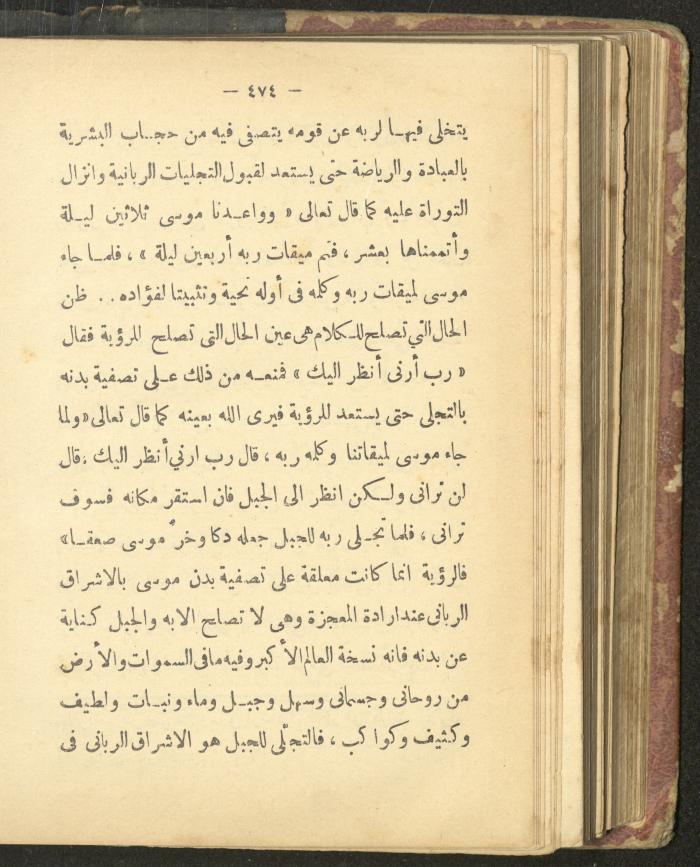 — ٤٧٤ —
يتخلى فيها لربه عن قومه يتصفى فيه من حجاب البشرية
بالعبادة والرياضة حتى يستعد لقبول التجليات الربانية وانزال
التوراة عليه كما قال تعالى « وواعدنا موسى ثلاثين ليلة
وأتممناها بعشر ، فتم ميقات ربه أربعين ليلة » ، فلما جاء
موسى لميقات ربه وكله فى أوله تحية وتثبيتا لفؤاده . . ظن
الحال التي تصلح للكلام هى عين الحال التى تصلح للرؤية فقال
« رب أرنى أنظر اليك » فمنعه من ذلك على تصفية بدنه
بالتجلى حتى يستعد للرؤية فيرى الله بعينه كما قال تعالى « ولما
جاء موسى لميقاتنا وكله ربه ، قال رب ارني أنظر اليك ، قال
لن ترانى ولكن انظر الى الجبل فان استقر مكانه فسوف
ترانى ، فلما تجلى ربه للجبل جعله دكا وخرّ موسى صعقا »
فالرؤية انما كانت معلقة على تصفية بدن موسى بالاشراق
الربانى عند ارادة المعجزة وهى لا تصلح الا به والجبل كناية
عن بدنه فانه نسخة العالم الأكبر وفيه ما فى السموات والأرض
من روحانى وجسمانى وسهل وجبل وماء ونبات ولطيف
وكثيف وكواكب ، فالتجلّى للجبل هو الاشراق الربانى فى